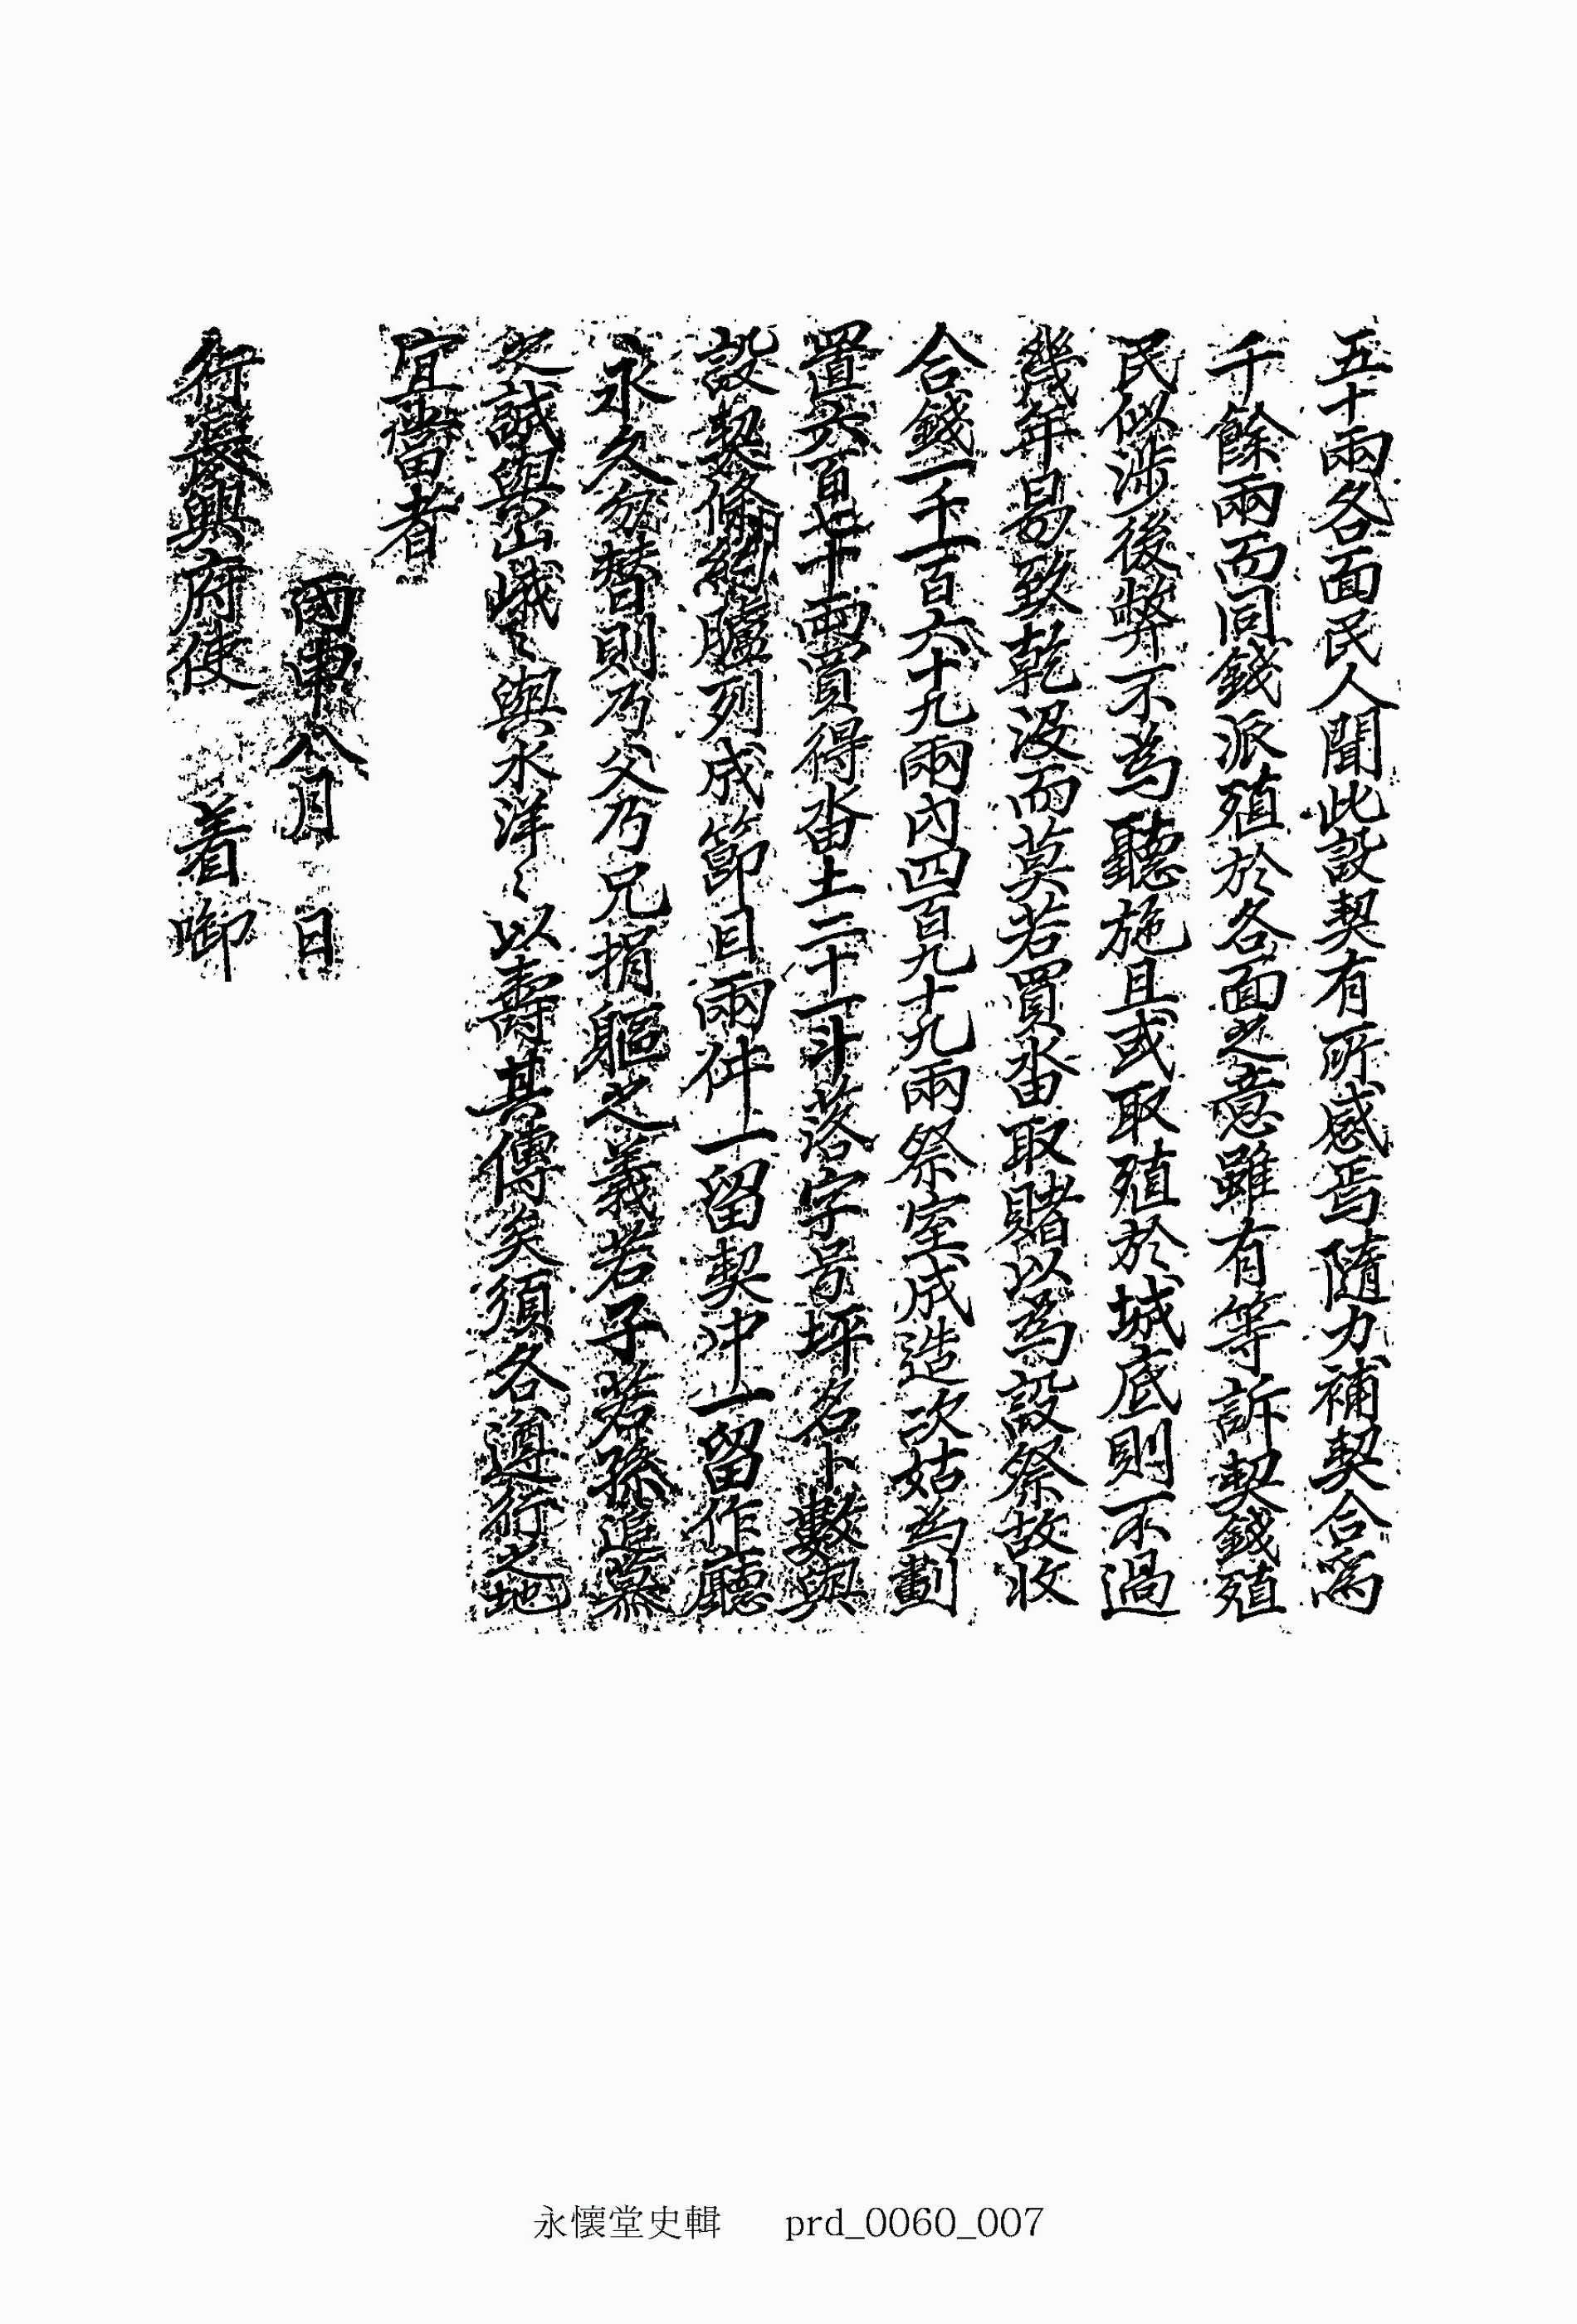 五十兩各面民人聞此設契有所感焉隨力補契合爲
千餘兩而同錢派殖於各面之意雖有等訴契錢殖
民似涉後弊不為聽施且或取殖於城底則不過
幾年易致乾沒而莫若買畓取賭以為設祭故收
合錢一千一百六十九兩內四百九十九兩祭室成造次姑為劃
置六百七十兩買得畓土二十一斗落字号坪名卜數與
設契條約臚列成節目兩件一留契中一留作廳
永久勿替則乃父乃兄捐軀之義若子若孫追慕
之誠與山峨〻與水洋〻以壽其傳矣須各遵行之地
宜當者
丙申八月　日
行長興府使　着啣
永懷堂史輯　prd_0060_007